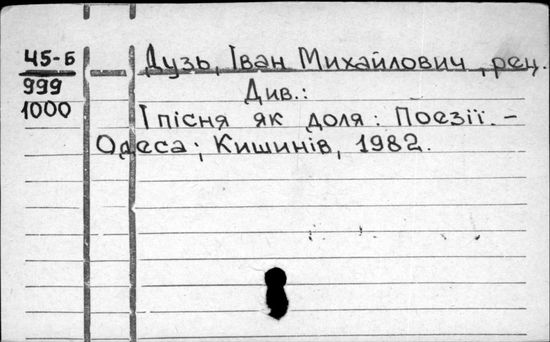 45-Б Дузь, Іван Михайлович, рец.
999 Див.:
1000 І пісня як доля: Поезії. –
Одеса; Кишинів, 1982.